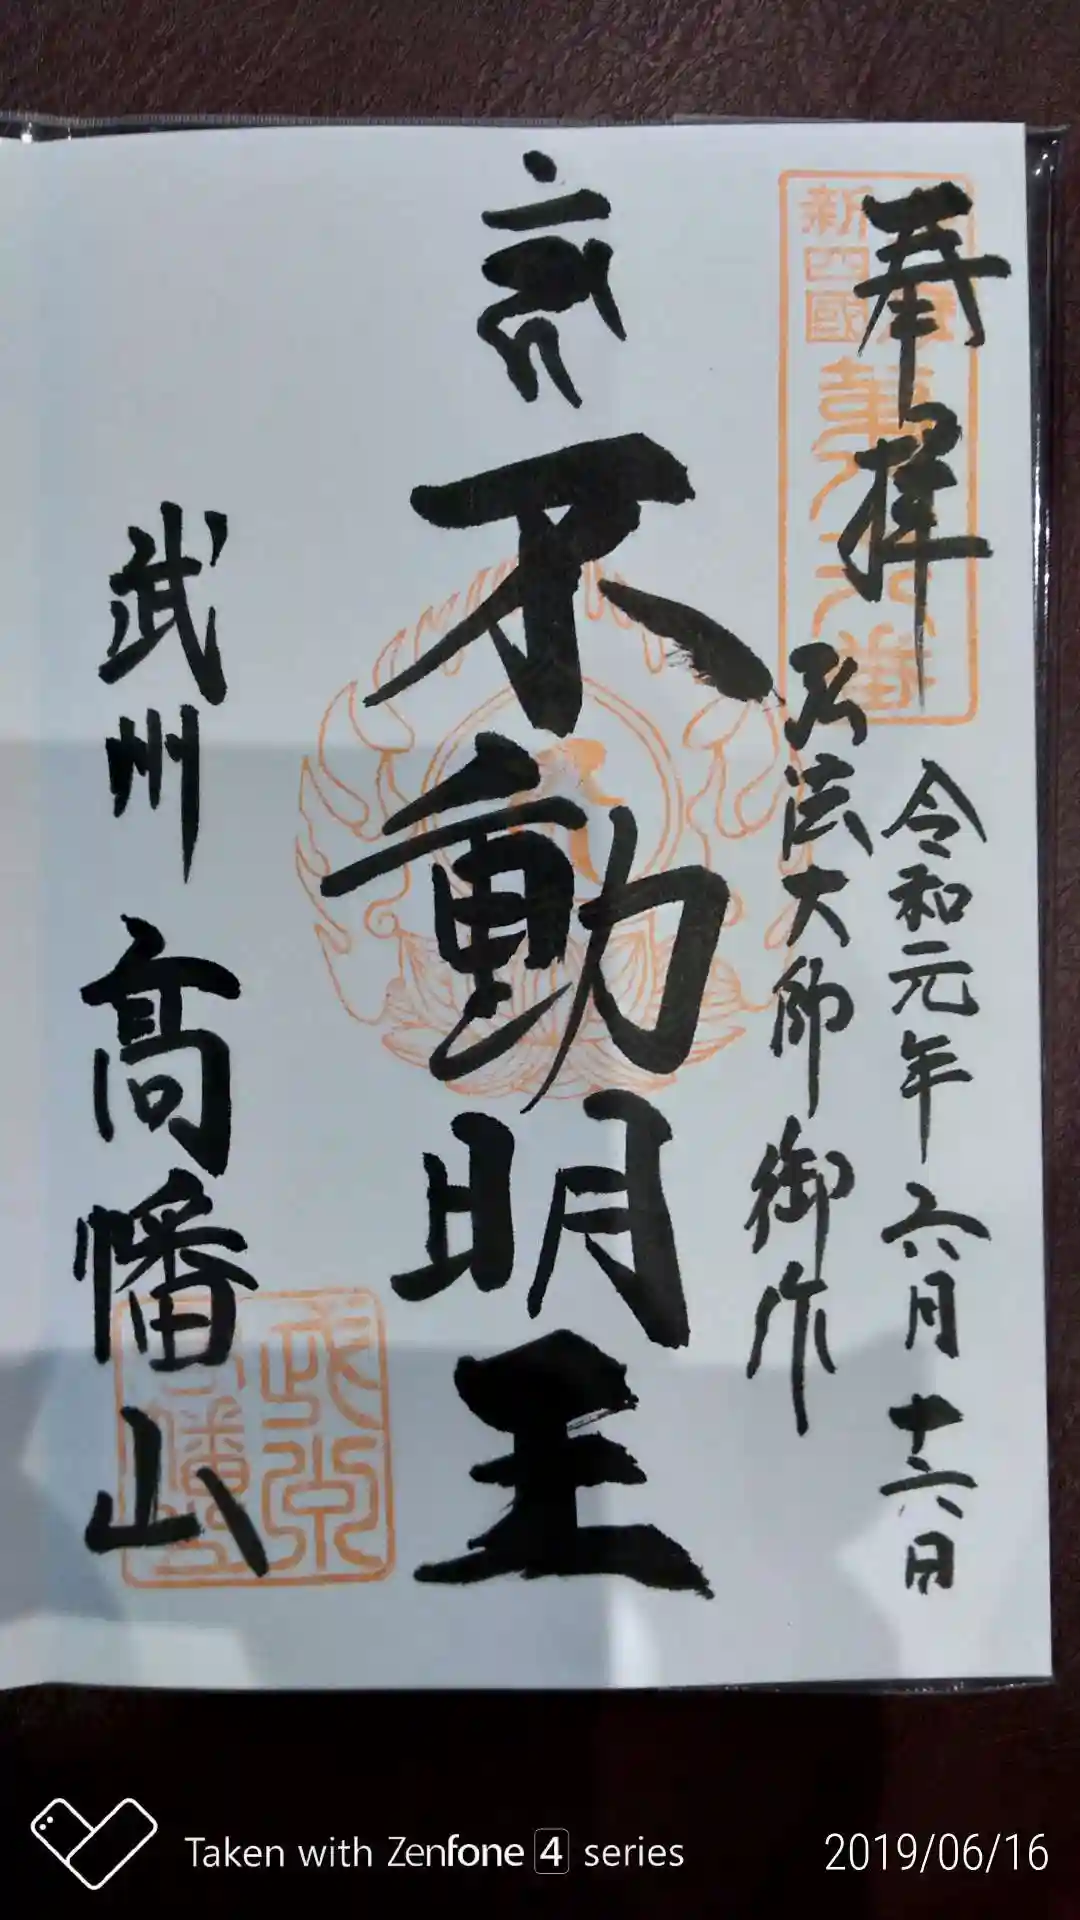 奉拝
令和元年六月十六日
弘法大師御作
不動明王
武州 高幡山
新四國
Taken with Zenfone 4 series
2019/06/16